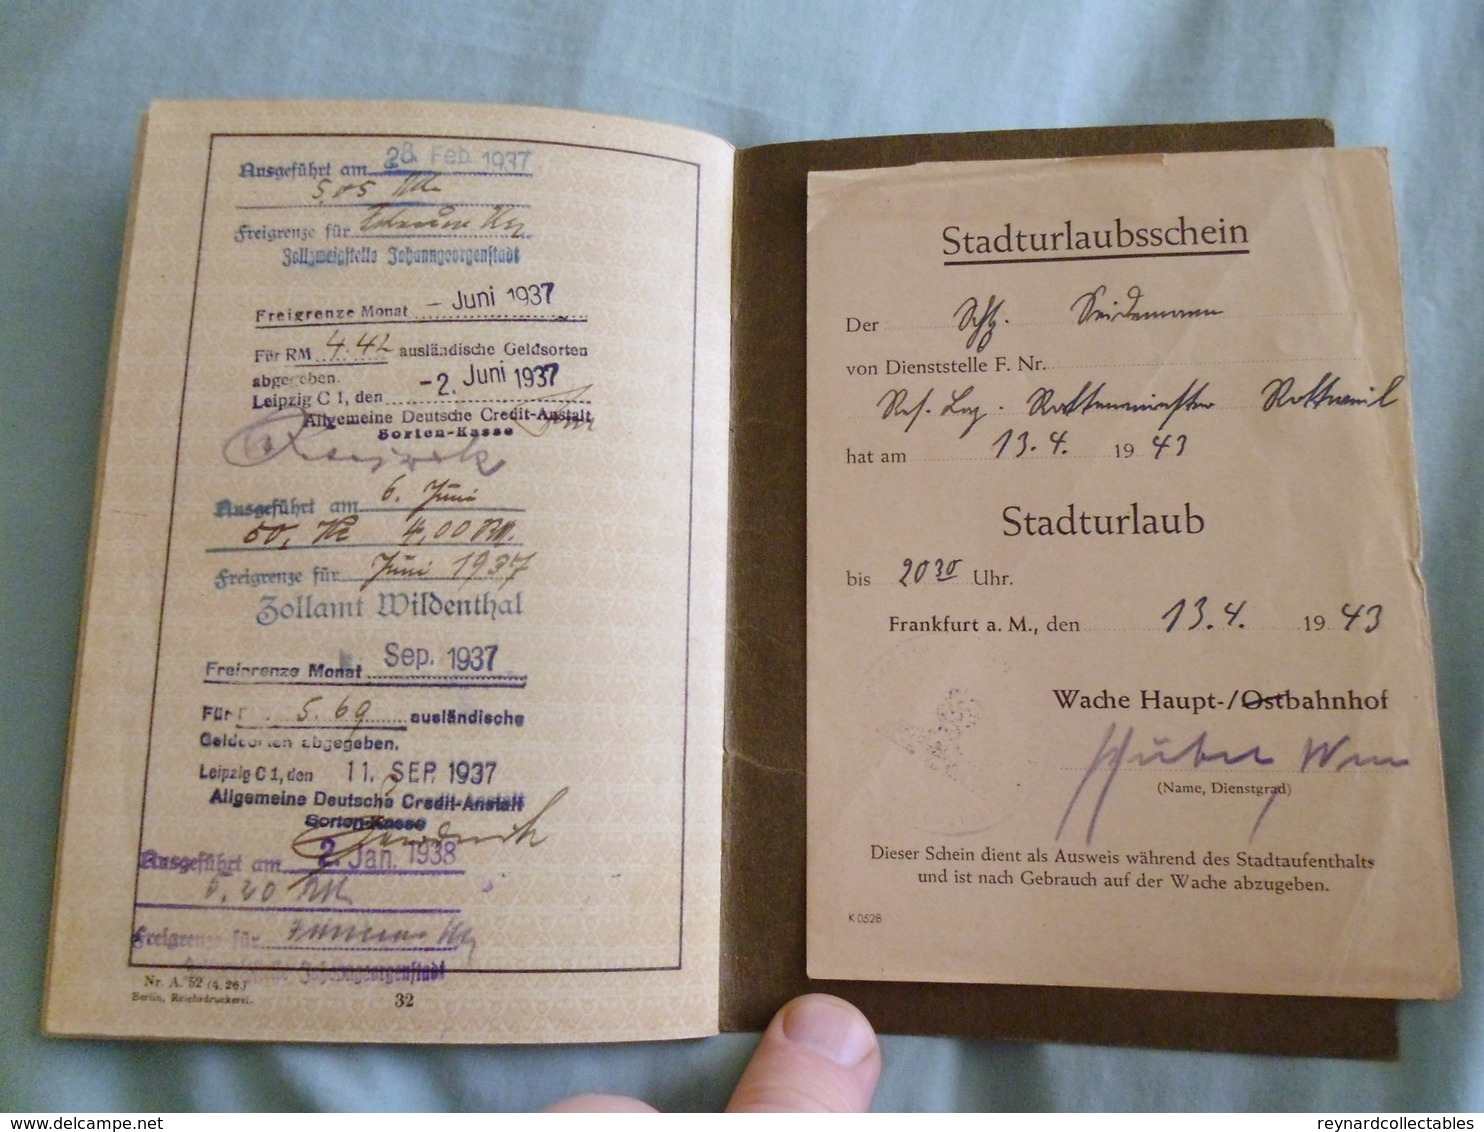 Ausgeführt am 28. Feb. 1937
5,05
Freigrenze für
Zollzweigstelle Johanngeorgenstadt
Freigrenze Monat - Juni 1937
Für RM 4.42 ausländische Geldsorten
abgegeben.
Leipzig C 1, den -2. Juni 1937
Allgemeine Deutsche Credit-Anstalt
Sorten-Kasse
Ausgeführt am 6. Juni
50, 4,00 RM.
Freigrenze für Juni 1937
Zollamt Wildenthal
Freigrenze Monat Sep. 1937
Für 5.69 ausländische
Geldsorten abgegeben.
Leipzig C 1, den 11. SEP. 1937
Allgemeine Deutsche Credit-Anstalt
Sorten-Kasse
Ausgeführt am 2. Jan. 1938
Freigrenze für
Johanngeorgenstadt
Nr. A. 52 (4. 26.)
Berlin, Reichsdruckerei.
32
Stadturlaubsschein
Der Schtz. Seidemann
von Dienststelle F. Nr.
Res. Laz. Rottenmünster Rottweil
hat am 13.4. 1943
Stadturlaub
bis 20 30 Uhr.
Frankfurt a. M., den 13.4. 1943
Wache Haupt-/Ostbahnhof
(Name, Dienstgrad)
Dieser Schein dient als Ausweis während des Stadtaufenthalts
und ist nach Gebrauch auf der Wache abzugeben.
K 0528
delcampe.net
reynardcollectables